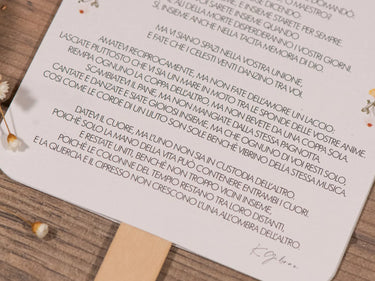 DOMANDÒ:
MAESTRO?
E DICENDO:
INSIEME, E INSIEME STARETE PER SEMPRE.
SARETE INSIEME QUANDO
ALI DELLA MORTE DISPERDERANNO I VOSTRI GIORNI.
SÌ, INSIEME ANCHE NELLA TACITA MEMORIA DI DIO.
MA VI SIANO SPAZI NELLA VOSTRA UNIONE,
E FATE CHE I CELESTI VENTI DANZINO TRA VOI.
AMATEVI RECIPROCAMENTE, MA NON FATE DELL'AMORE UN LACCIO:
LASCIATE PIUTTOSTO CHE VI SIA UN MARE IN MOTO TRA LE SPONDE DELLE VOSTRE ANIME.
RIEMPIA OGNUNO LA COPPA DELL'ALTRO, MA NON BEVETE DA UNA COPPA SOLA.
SCAMBIATEVI IL PANE, MA NON MANGIATE DALLA STESSA PAGNOTTA.
CANTATE E DANZATE E SIATE GIOIOSI INSIEME, MA CHE OGNUNO DI VOI RESTI SOLO,
COSÌ COME LE CORDE DI UN LIUTO SON SOLE BENCHÉ VIBRINO DELLA STESSA MUSICA.
DATEVI IL CUORE, MA L'UNO NON SIA IN CUSTODIA DELL'ALTRO,
POICHÉ SOLO LA MANO DELLA VITA PUÒ CONTENERE ENTRAMBI I CUORI.
E RESTATE UNITI, BENCHÉ NON TROPPO VICINI INSIEME,
POICHÉ LE COLONNE DEL TEMPIO RESTANO TRA LORO DISTANTI,
E LA QUERCIA E IL CIPRESSO NON CRESCONO L'UNA ALL'OMBRA DELL'ALTRO.
K. Gibran